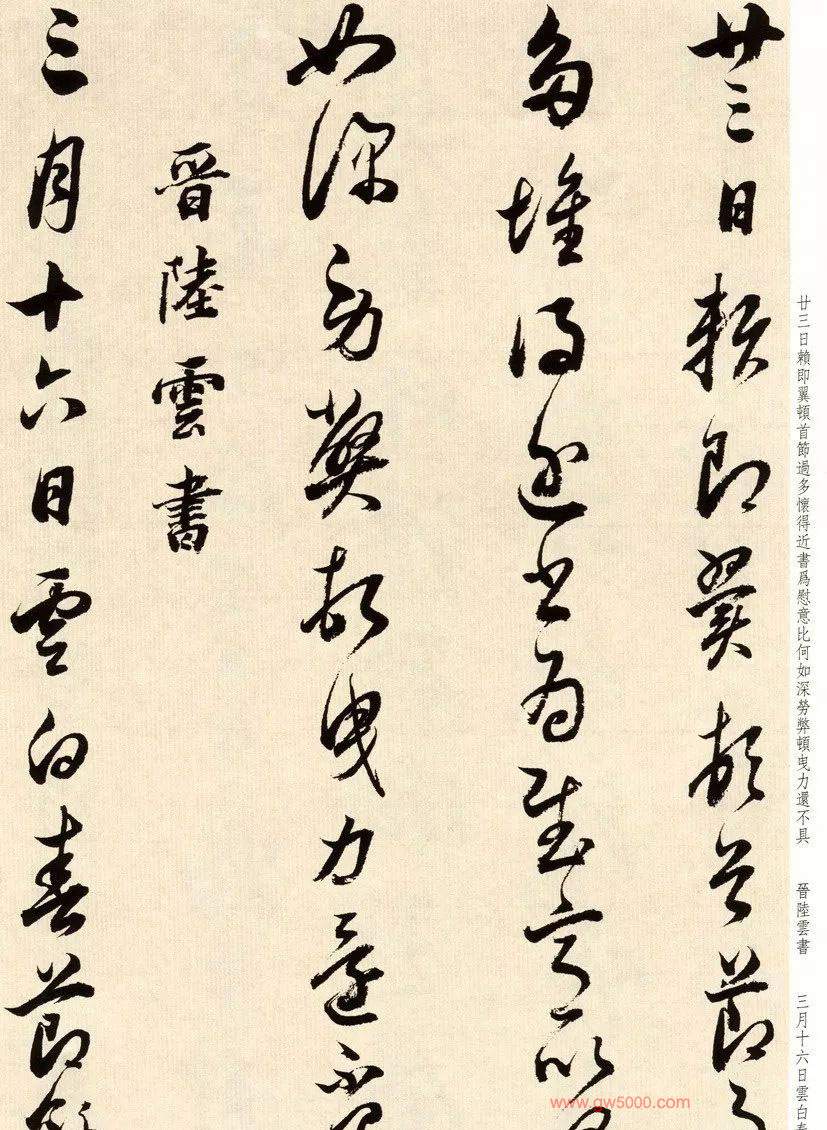 廿三日賴即翼頓首節過多懷得近書爲慰意比何如深勞弊頓曳力還不具
晉陸雲書
三月十六日雲白春
廿三日賴即翼頓首節過
多懷得近書爲慰意比何
如深勞弊頓曳力還不具
晉陸雲書
三月十六日雲白春節
www.gw5000.com